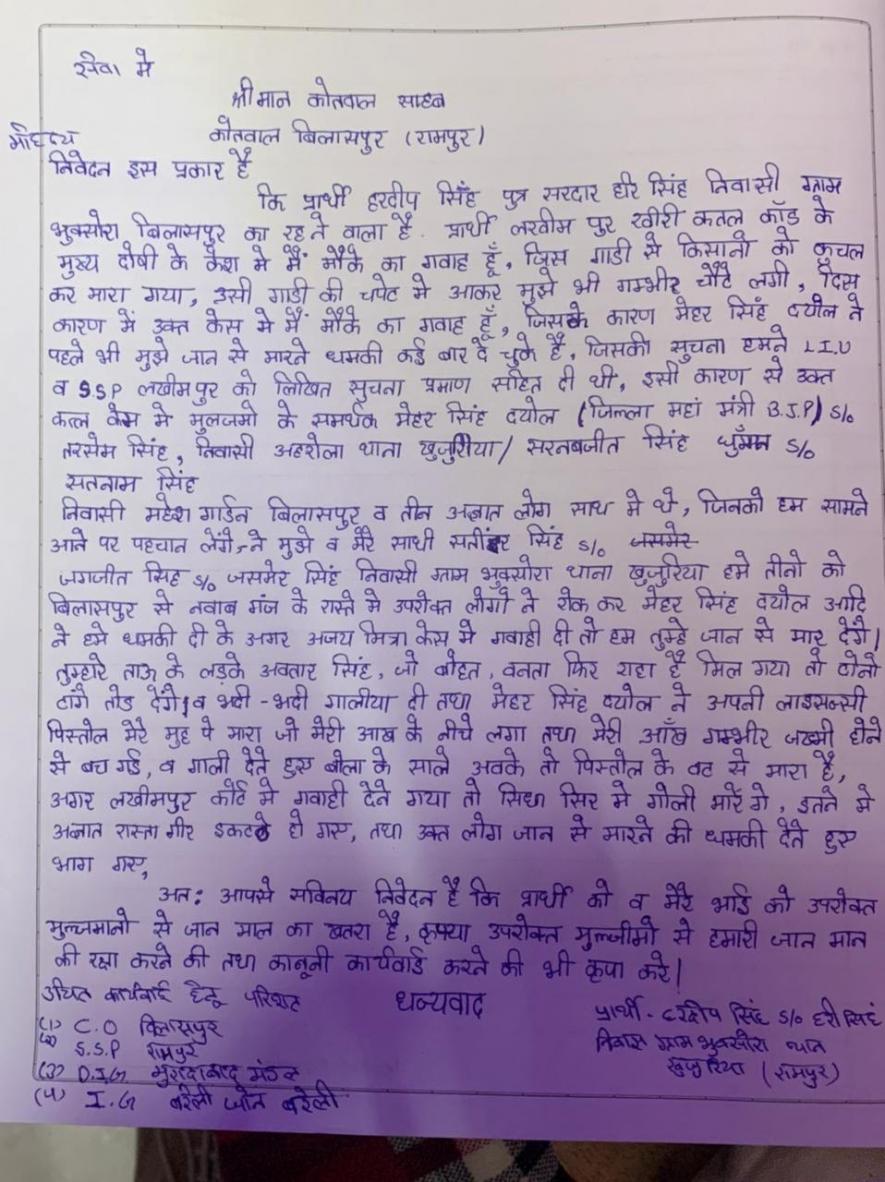 सेवा मे
श्रीमान कोतवाल साहब
कोतवाल बिलासपुर (रामपुर)
निवेदन इस प्रकार है
कि प्रार्थी हरदीप सिंह पुत्र सरदार हरि सिंह निवासी ग्राम
भुक्सोरा बिलासपुर का रहने वाला है. प्रार्थी लखीम पुर खीरी कतल कॉड के
मुख्य दोषी के केश मे मैं मौके का गवाह हूँ, जिस गाडी से किसानो को कुचल
कर मारा गया, उसी गाडी की चपेट मे आकर मुझे भी गम्भीर चौटे लगी,
कारण में उक्त केस मे मैं मौके का गवाह हूँ, जिसके कारण मेहर सिंह दयोल ने
पहले भी मुझे जान से मारने धमकी कई बार दे चुके है, जिसकी सुचना हमने L.I.U
व S.S.P लखीमपुर को लिखित सुचना प्रमाण सहित दी थी, इसी कारण से उक्त
कत्ल केस मे मुलजमो के समर्थक मेहर सिंह दयोल (जिल्ला महां मंत्री B.J.P) S/o
तरसेम सिंह, निवासी अहरोला थाना खुजुरिया/ सरनबजीत सिंह S/o
सतनाम सिंह
निवासी महेश गार्डन बिलासपुर व तीन अज्ञात लोग साथ मे थे, जिनको हम सामने
आने पर पहचान लेंगे,-ने मुझे व मेरे साथी सिंह S/o जसमेर
जगजीत सिंह S/o जसमेर सिंह निवासी ग्राम भुक्सोरा थाना खुजुरिया हमे तीनो को
बिलासपुर से नवाब गंज के रास्ते मे उपरोक्त लोगों ने रोक कर मेहर सिंह दयोल आदि
ने हमे धमकी दी के अगर अजय मित्रा केस मे गवाही दी तो हम तुम्हे जान से मार देंगे।
तुम्हारे ताऊ के लड़के अवतार सिंह, जो बोहत, वनता फिर राहा है मिल गया तो दोनो
टांगे तोड देंगे। व भद्दी-भद्दी गालीया दी तथा मेहर सिंह दयोल ने अपनी लाइसन्सी
पिस्तोल मेरे मुह पे मारा जो मेरी आख के नीचे लगा तथा मेरी आँख गम्भीर जख्मी होने
से बच गई, व गाली देते हुए बोला के साले अबके तो पिस्तोल के बट से मारा है,
अगर लखीमपुर कोर्ट मे गवाही देने गया तो सिधा सिर मे गोली मारेंगे, इतने मे
अज्ञात रास्ता गीर इकटठे हो गए, तथा उक्त लोग जान से मारने की धमकी देते हुए
भाग गए,
अत: आपसे सविनय निवेदन है कि प्रार्थी को व मेरे भाई को उपरोक्त
मुल्जमानो से जान माल का खतरा है, कृपया उपरोक्त मुल्जीमो से हमारी जान माल
की रक्षा करने की तथा कानूनी कार्यवाई करने की भी कृपा करे।
उचित कार्यवाई हेतू
धन्यवाद
(1) C.O बिलासपुर
(2) S.S.P रामपुर
(3) D.I.G मुरादाबाद मंडल
(4) I.G बरेली जोन बरेली
प्रार्थी - हरदीप सिंह S/o हरी सिंह
ग्राम भुक्सोरा थाना
खुजुरिया (रामपुर)